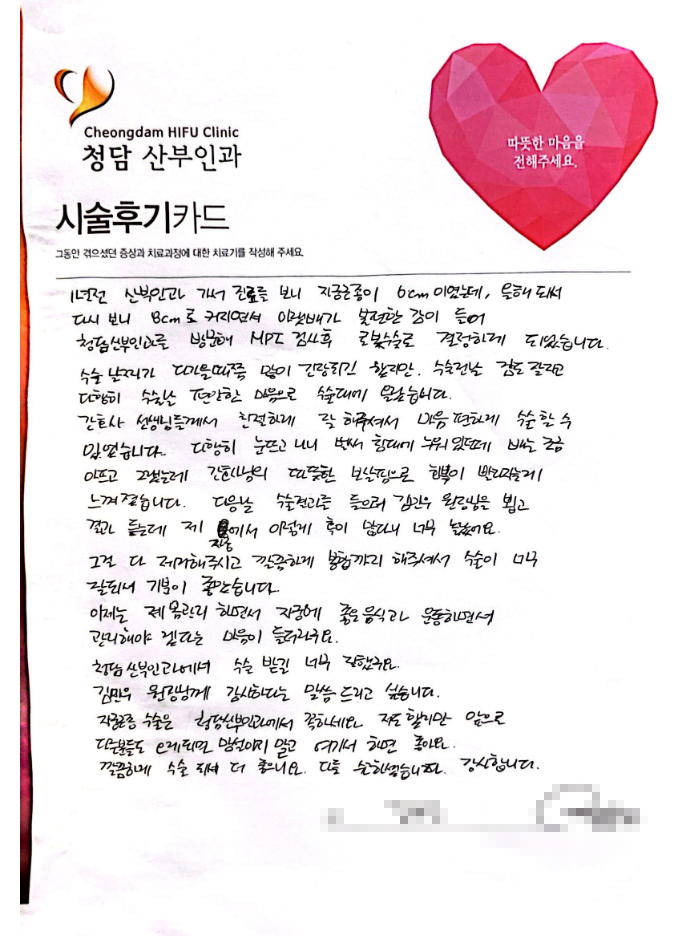 Cheongdam HIFU Clinic
청담 산부인과
따뜻한 마음을
전해주세요.
시술후기카드
그동안 겪으셨던 증상과 치료과정에 대한 치료기를 작성해 주세요.
1년전 산부인과 가서 진료를 보니 자궁근종이 6cm 이였는데, 올해 되서
다시 보니 8cm로 커지면서 아랫배가 불편한 감이 들어
청담산부인과를 방문해 MRI 검사후 로봇수술로 결정하게 되었습니다.
수술 날짜가 다가올때쯤 많이 긴장되긴 했지만, 수술전날 잠도 잘자고
다행히 수술날 편안한 마음으로 수술대에 올랐습니다.
간호사 선생님들께서 친절하게 잘 해주셔서 마음 편하게 수술 할 수
있었습니다. 다행히 눈뜨고 나니 벌써 침대에 누워 있었는데 배는 조금
아프고 그랬는데 간호사님의 따뜻한 보살핌으로 회복이 빠르게
느껴졌습니다. 다음날 수술결과를 들으러 김민우 원장님을 뵙고
결과 듣는데 제 자궁에서 이렇게 혹이 많다니 너무 놀랬어요.
그걸 다 제거해주시고 깔끔하게 봉합까지 해주셔서 수술이 너무
잘되서 기분이 좋았습니다.
이제는 제 몸관리 하면서 자궁에 좋은 음식과 운동하면서
관리해야 겠다는 마음이 들더라구요.
청담산부인과에서 수술 받길 너무 잘했구요.
김민우 원장님께 감사하다는 말씀 드리고 싶습니다.
자궁근종 수술은 청담산부인과에서 꼭하세요. 저도 했지만 앞으로
다른분들도 망설이지 말고 여기서 하면 좋아요.
깔끔하게 수술 되서 더 좋으니요. 다들 감사합니다.